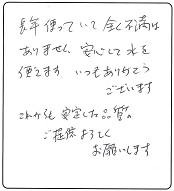 長年使っていて全く不満は
ありません。安心して水を
使えます いつもありがとう
ございます
これからも安定した品質の
ご提供よろしく
お願いします